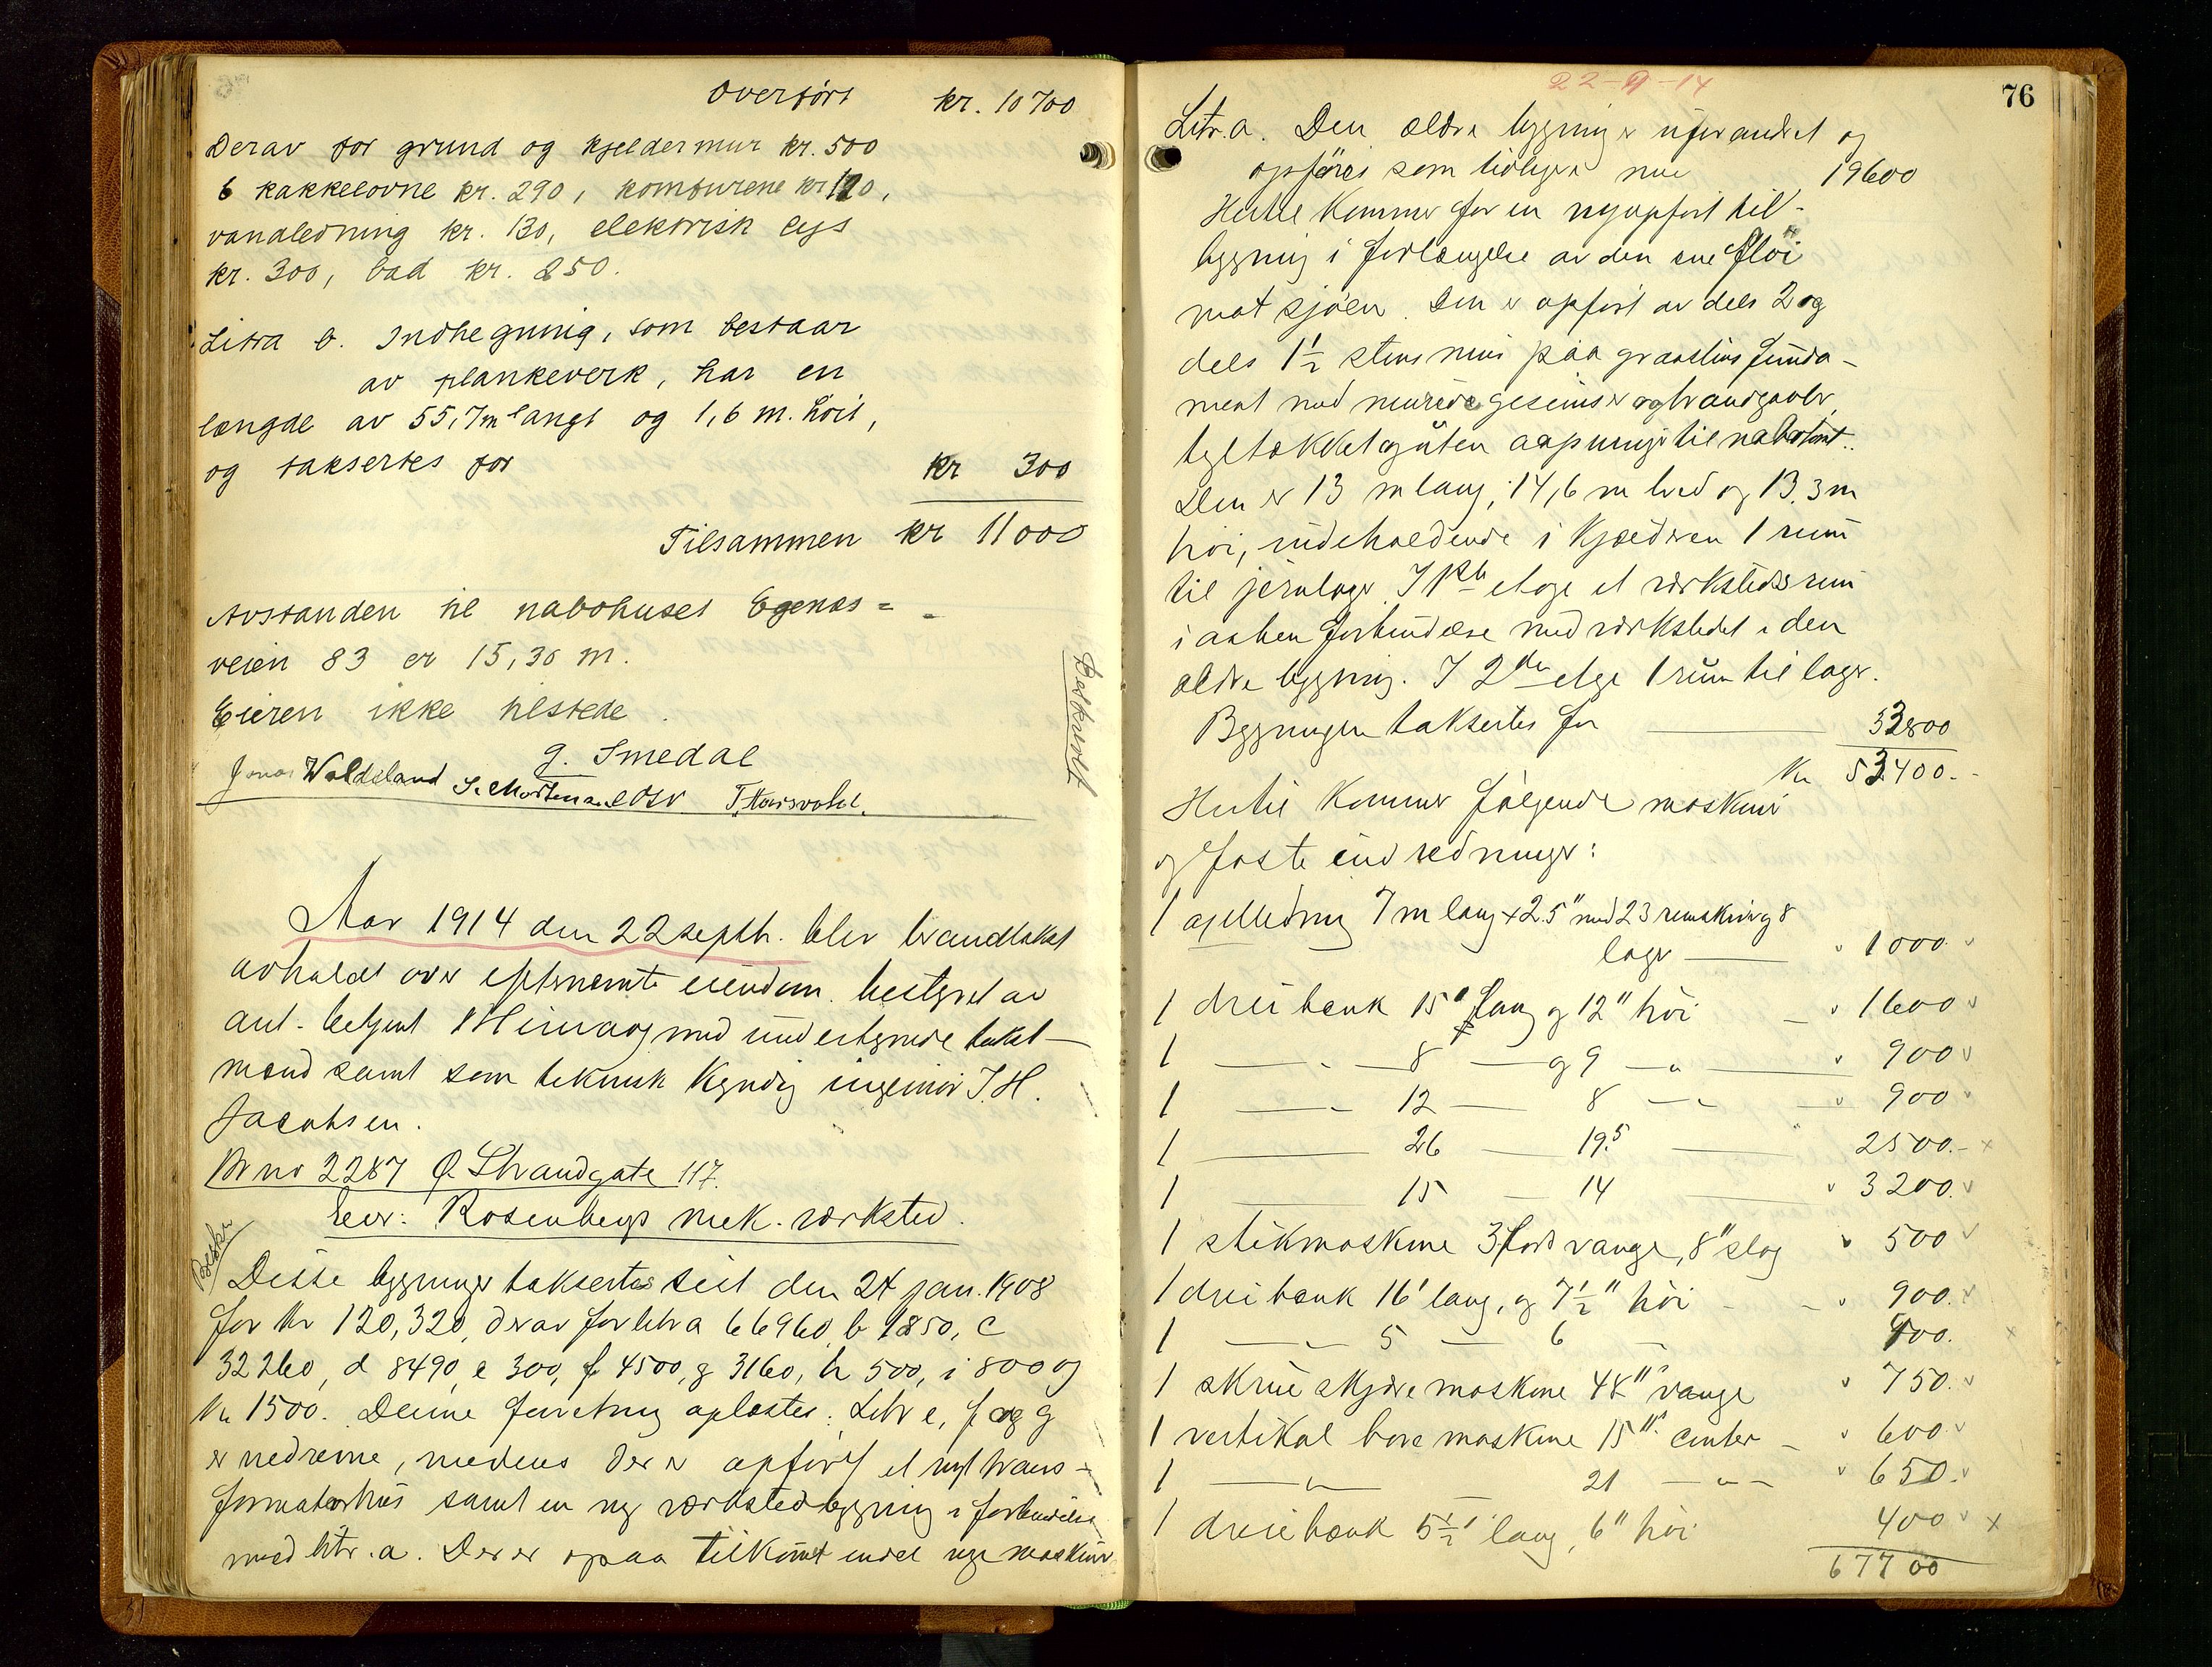 Overført kr. 10700
Derav for grund og kjeldermur kr. 500
6 kakkelovne kr. 290, komfurene kr 120,
vandledning kr. 130, elektrisk lys
kr. 300, bad kr. 250.
Litra b. Indhegning, som bestaar
av plankeverk, har en
længde av 55,7m langt og 1,6 m. høit,
og taksertes for kr 300
Tilsammen kr 11000
Avstanden til nabohuset Egenæs=
veien 83 er 15,30 m.
Eieren ikke tilstede.
G. Smedal
Jonas Waldeland
Aar 1914 den 22 septb. blev brandtakst
avholdt over efternevnte eiendom bestyret av
aut. betjent med undertegnede takst-
mænd samt som teknisk kyndig ingeniør J. H.
Jacobsen.
Br no 2287 Ø Strandgate 117.
Eier: Rosenbergs mek. værksted.
Beskr
Disse bygninger taksertes sist den 24 jan. 1908
for kr 120,320, derav for litra a 66960, b 1850, c
32260, d 8490, e 300, f 4500, g 3160, h 500, i 800 og
k 1500. Denne forretning oplæstes. Litr e, f og g
er nedrevne, medens der er opført et nyt trans-
formatorhus samt en ny værkstedbygning i forbindelse
med litr. a. Der er opaa tilkomet endel nye maskiner
22-9-14
76
Litr. a. Den ældre bygning er uforandret og
opføres som tidligere med 19600
Hertil kommer for en nyopført til-
bygning i forlængelse av den ene fløi
mot sjøen. Den er opført av dels 2 og
dels 1½ stens mur paa graastens funda-
ment med murede gesimser og brandgavler,
tegltækket og uten aapninger til nabotomt.
Den er 13 m lang, 14,6 m bred og 13,3 m
høi, indeholdende i kjælderen 1 rum
til jernlager. I 1ste etage et værkstedsrum
i aaben forbindelse med værkstedet i den
ældre bygning. I 2den etage 1 rum til lager.
Bygningen taksertes for 33800
Kr 53400.-
Hertil kommer følgende maskiner
og faste indredninger:
1 axelledning 7 m lang x 2.5" med 23 remskiver og 8
lager " 1000.
1 dreiebænk 15' lang og 12" høi " 1600
1 — " — 8 — og 9 — " — " 900
1 — " — 12 — 8 — " — " 900
1 — 26 — 19.5 — " 2500.- x
1 — 15 — 14 — " 3200.
1 stikmaskine 3 fots vange, 8" slag " 500
1 dreiebænk 16' lang, og 7½" høi - " 900.
1 — " — 5 — 6 — 400. x
1 skrueskjæremaskine 48" vange " 750.
1 vertikal boremaskine 15" center - " 600
1 — " — 21 — " — " 650.
1 dreiebænk 5½' lang, 6" høi 400 x
67700